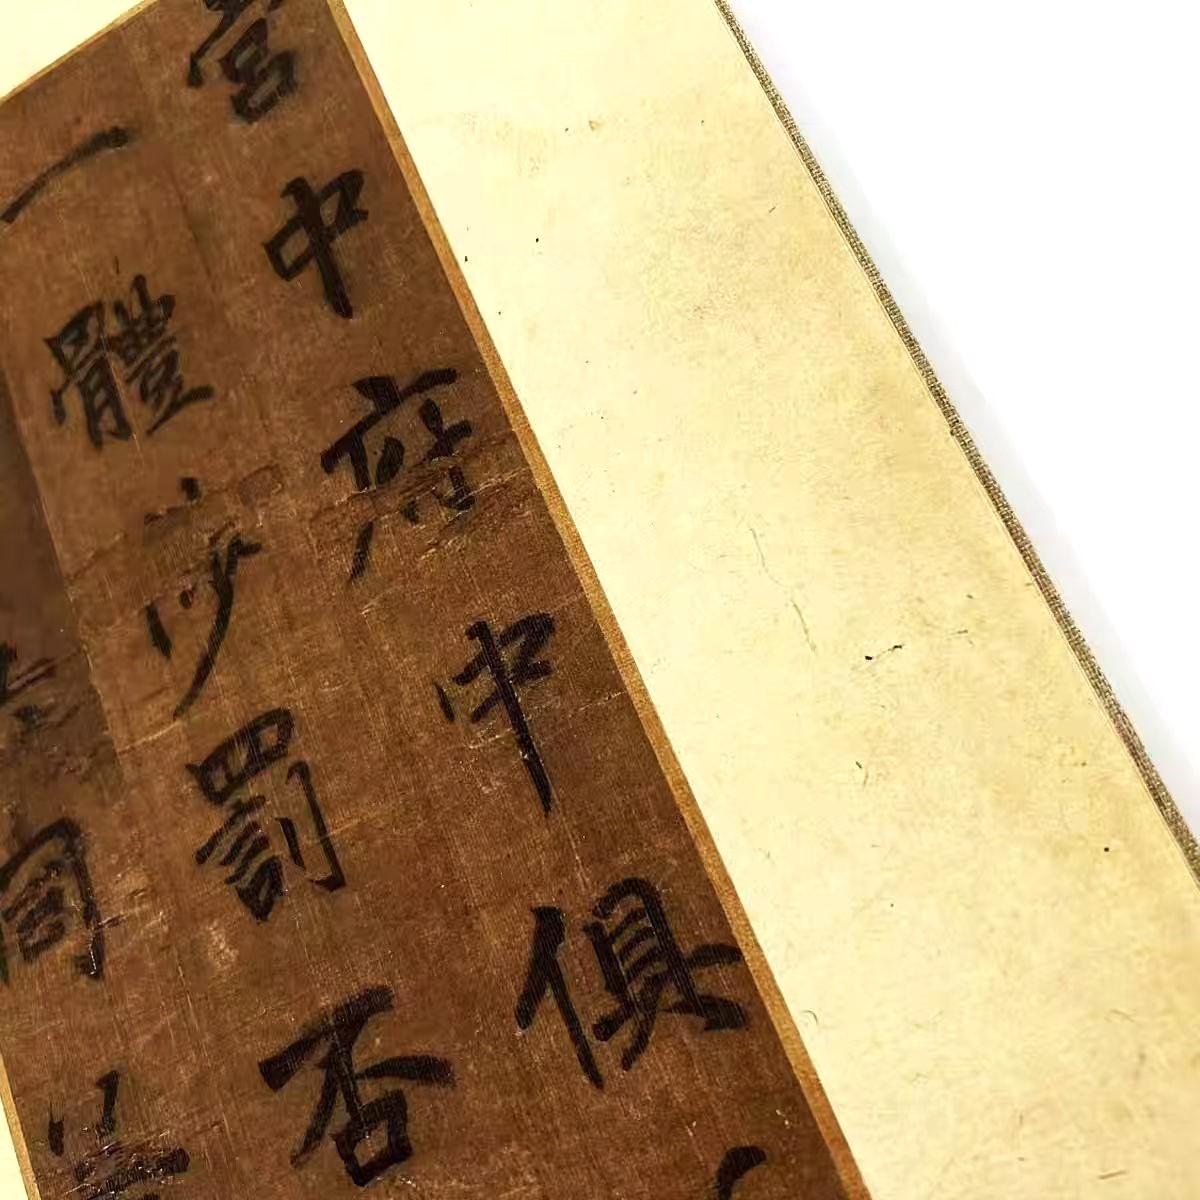 宮中府中俱
一體罰否
同